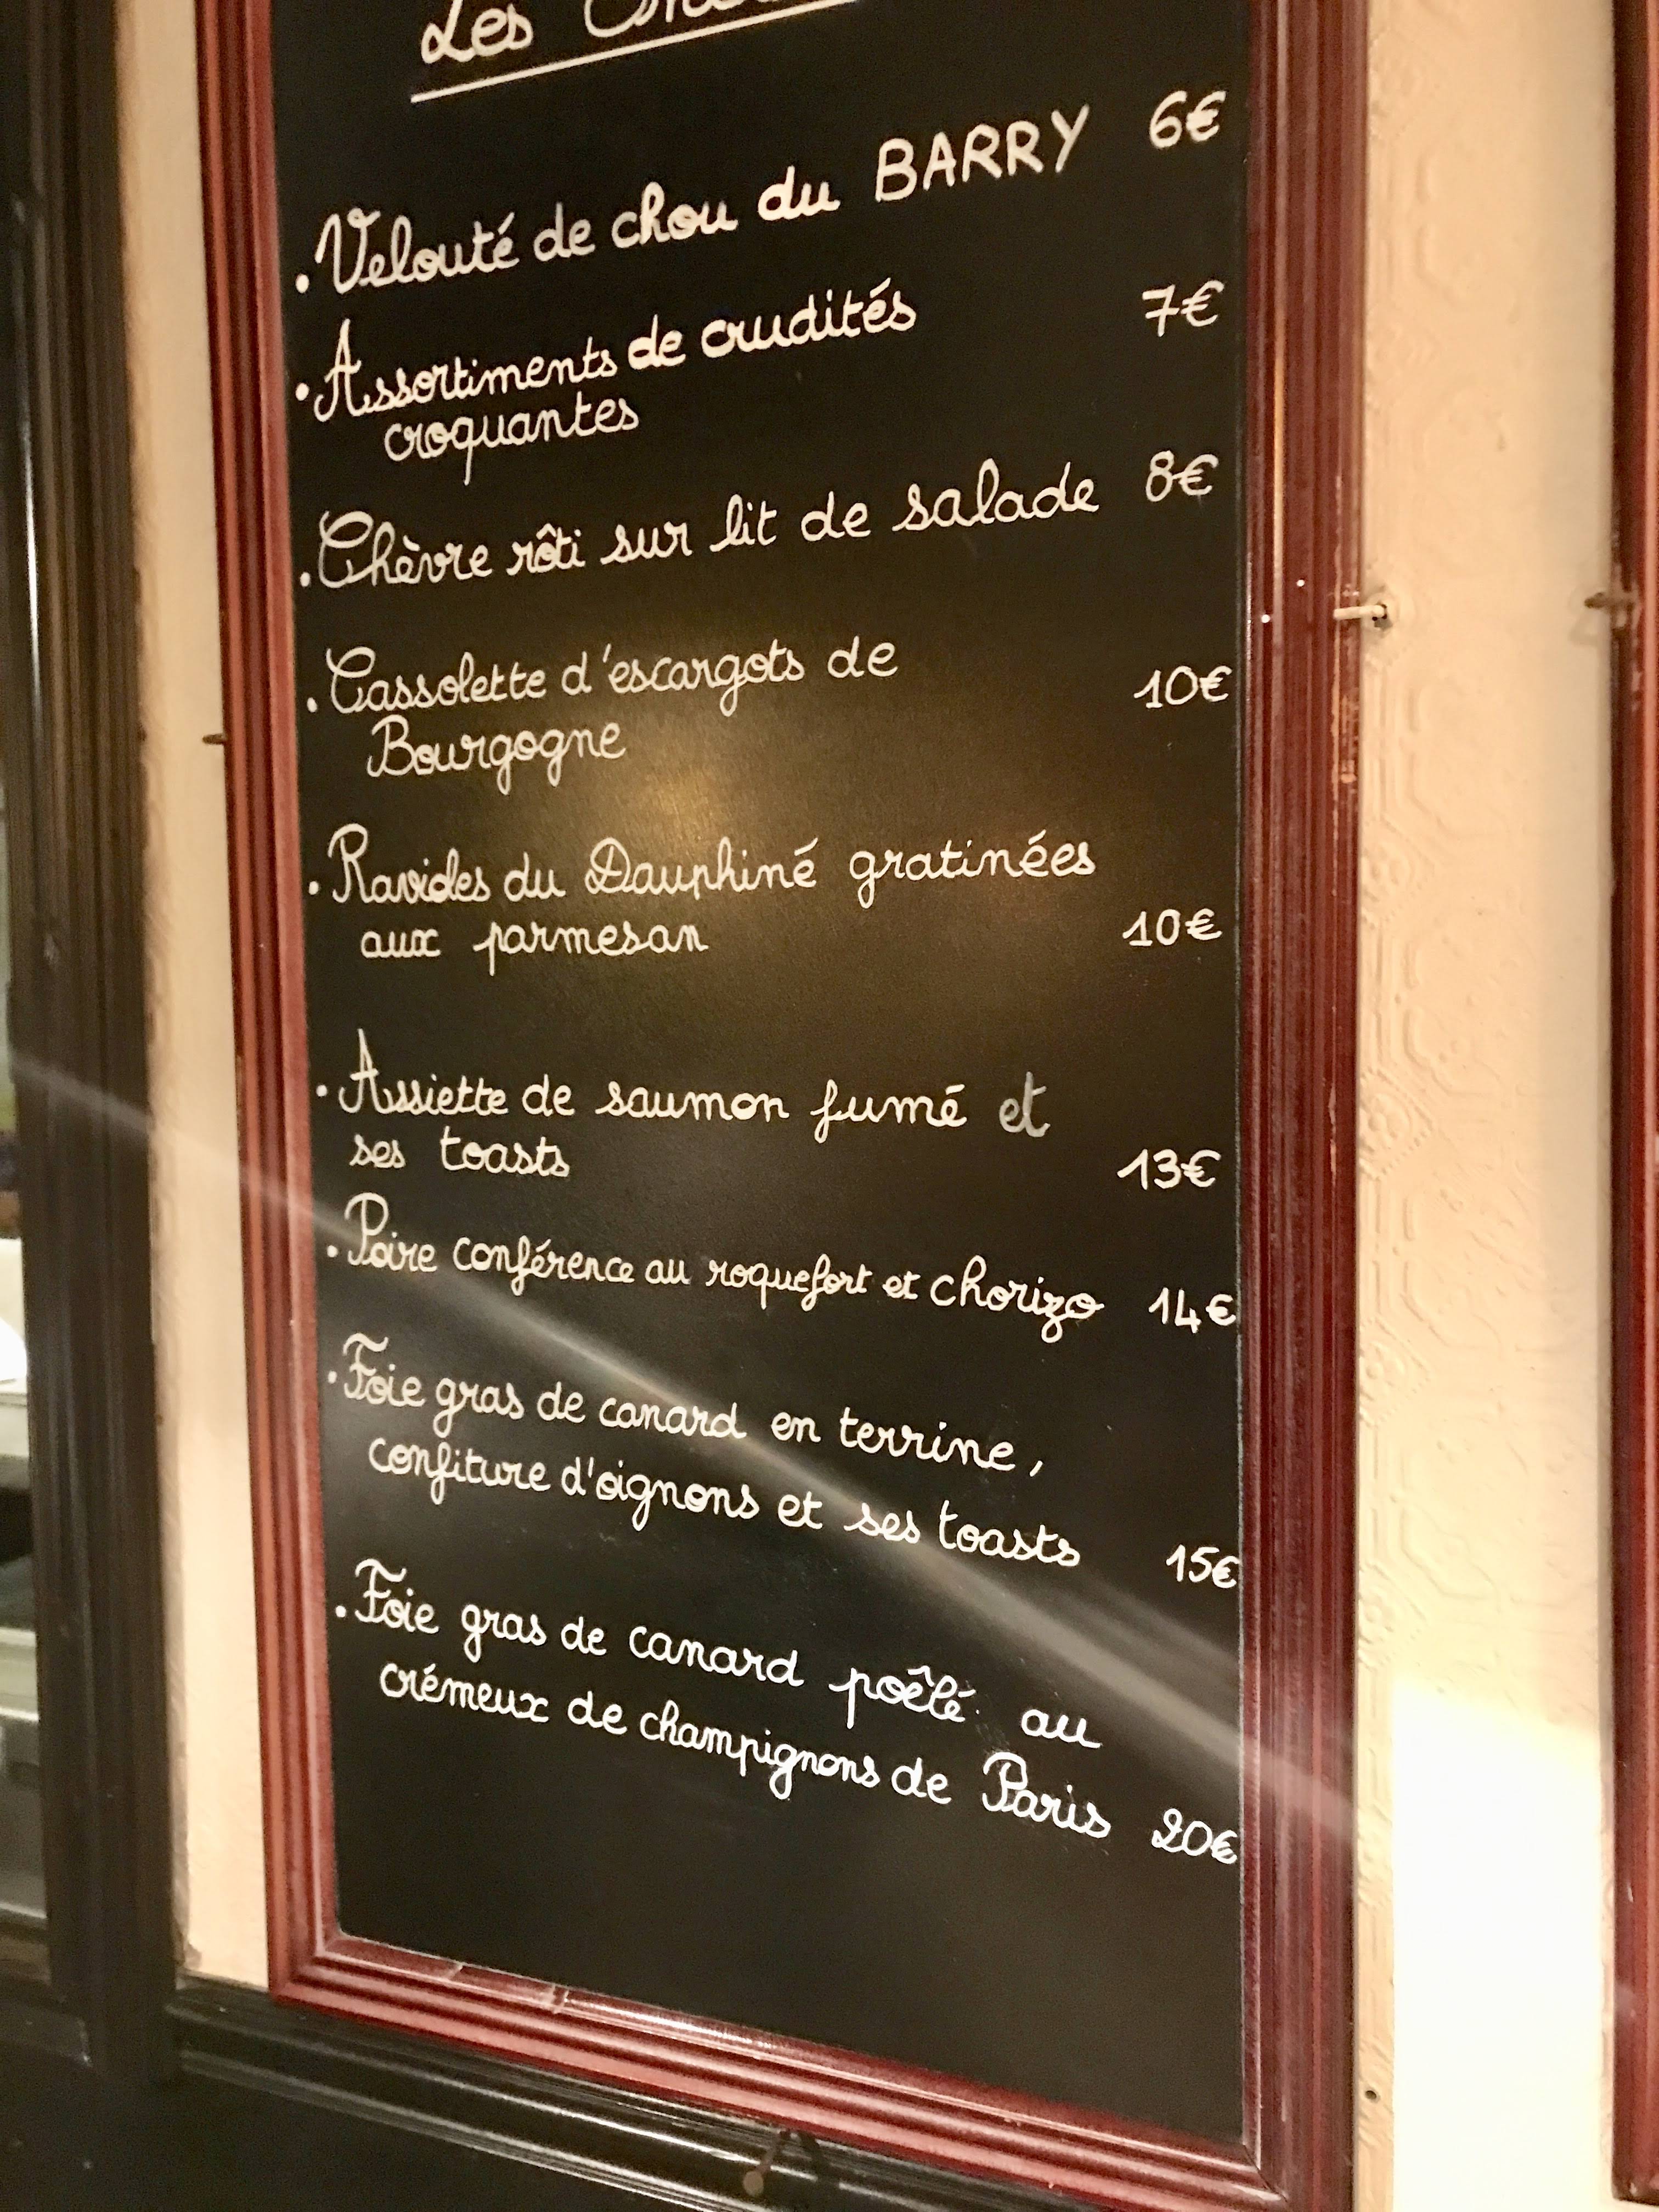 Les
.Velouté de chou du BARRY 6€
.Assortiments de crudités 7€
croquantes
.Chèvre rôti sur lit de salade 8€
.Cassolette d'escargots de
Bourgogne 10€
.Ravioles du Dauphiné gratinées
aux parmesan 10€
.Assiette de saumon fumé et
ses toasts 13€
.Poire conférence au roquefort et chorizo 14€
.Foie gras de canard en terrine,
confiture d'oignons et ses toasts 15€
.Foie gras de canard poêlé au
crémeux de champignons de Paris 20€